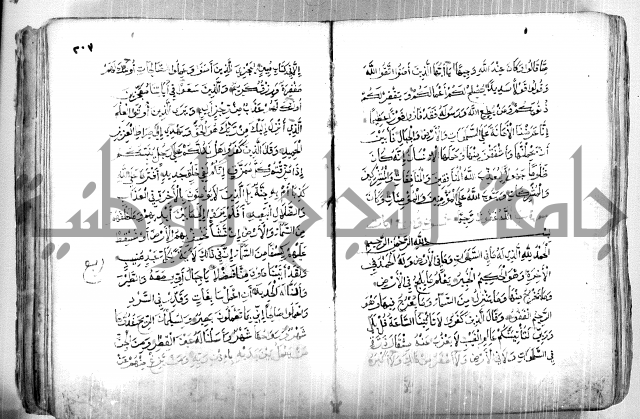 مما قالوا وكان عند الله وجيها يا أيها الذين آمنوا اتقوا الله
وقولوا قولا سديدا يصلح لكم أعمالكم ويغفر لكم
ذنوبكم ومن يطع الله ورسوله فقد فاز فوزا عظيما
إنا عرضنا الأمانة على السموات والأرض والجبال فأبين
أن يحملنها وأشفقن منها وحملها الإنسان إنه كان
ظلوما جهولا ليعذب الله المنافقين والمنافقات والمشركين
والمشركات ويتوب الله على المؤمنين والمؤمنات وكان
الله غفورا رحيما
بسم الله الرحمن الرحيم
الحمد لله الذي له ما في السموات وما في الأرض وله الحمد في
الآخرة وهو الحكيم الخبير يعلم ما يلج في الأرض
وما يخرج منها وما ينزل من السماء وما يعرج فيها وهو
الرحيم الغفور وقال الذين كفروا لا تأتينا الساعة قل بلى
وربي لتأتينكم عالم الغيب لا يعزب عنه مثقال ذرة
في السموات ولا في الأرض ولا أصغر من ذلك ولا أكبر
٣٠٧
إلا في كتاب مبين ليجزي الذين آمنوا وعملوا الصالحات أولئك لهم
مغفرة ورزق كريم والذين سعوا في آياتنا معاجزين
أولئك لهم عذاب من رجز أليم ويرى الذين أوتوا العلم
الذي أنزل إليك من ربك هو الحق ويهدي إلى صراط العزيز
الحميد وقال الذين كفروا هل ندلكم على رجل ينبئكم
إذا مزقتم كل ممزق إنكم لفي خلق جديد أفترى على الله
كذبا أم به جنة بل الذين لا يؤمنون بالآخرة في العذاب
والضلال البعيد أفلم يروا إلى ما بين أيديهم وما خلفهم
من السماء والأرض إن نشأ نخسف بهم الأرض أو نسقط
عليهم كسفا من السماء إن في ذلك لآية لكل عبد منيب
ولقد آتينا داود منا فضلا يا جبال أوبي معه والطير
وألنا له الحديد أن اعمل سابغات وقدر في السرد
واعملوا صالحا إني بما تعملون بصير ولسليمان الريح غدوها
شهر ورواحها شهر وأسلنا له عين القطر ومن الجن
من يعمل بين يديه بإذن ربه ومن يزغ منهم عن
ربع
جامعة النجاح الوطنية